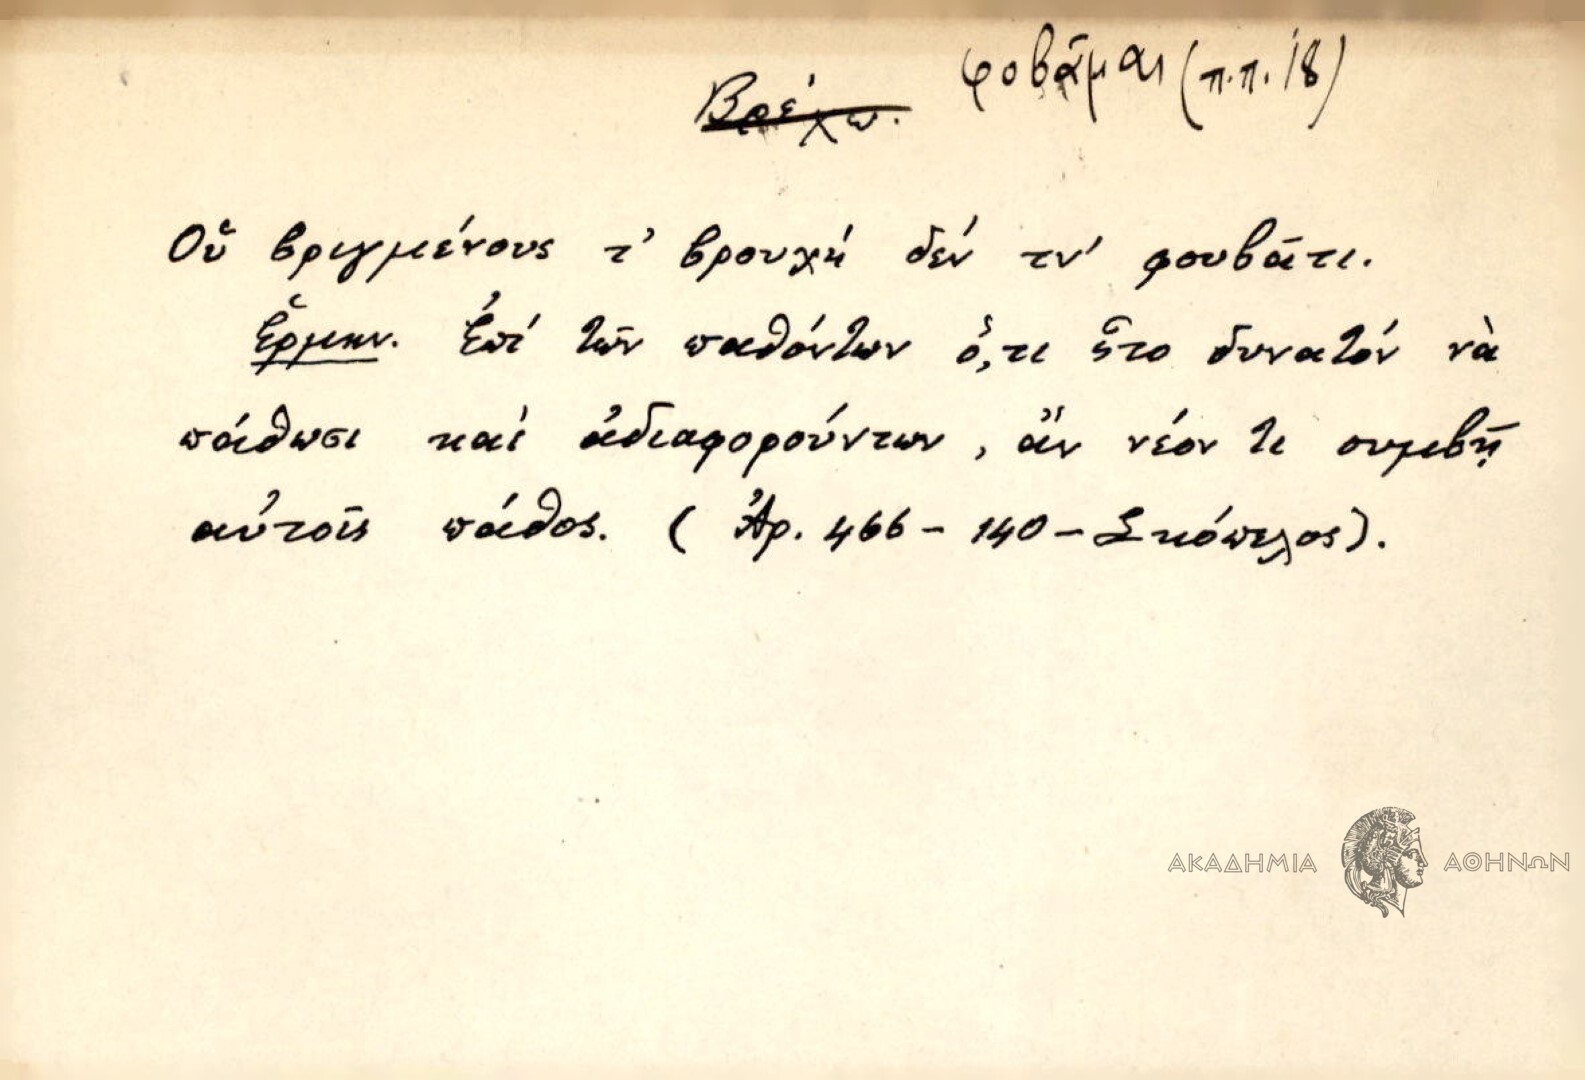 Βρέχω. φοβᾶμαι (π.π. 18)
Οὑ βριγμένους τ' βρουχή δέν τν' φουβᾶτι.
Ἑρμην. Ἐπί τῶν παθόντων ὅ,τι ἦτο δυνατόν νὰ
πάθωσι καί ἀδιαφορούντων, ἄν νέον τι συμβῇ
αὐτοῖς πάθος. (Ἀρ. 466 - 140 - Σκόπελος).
ΑΚΑΔΗΜΙΑ ΑΘΗΝΩΝ